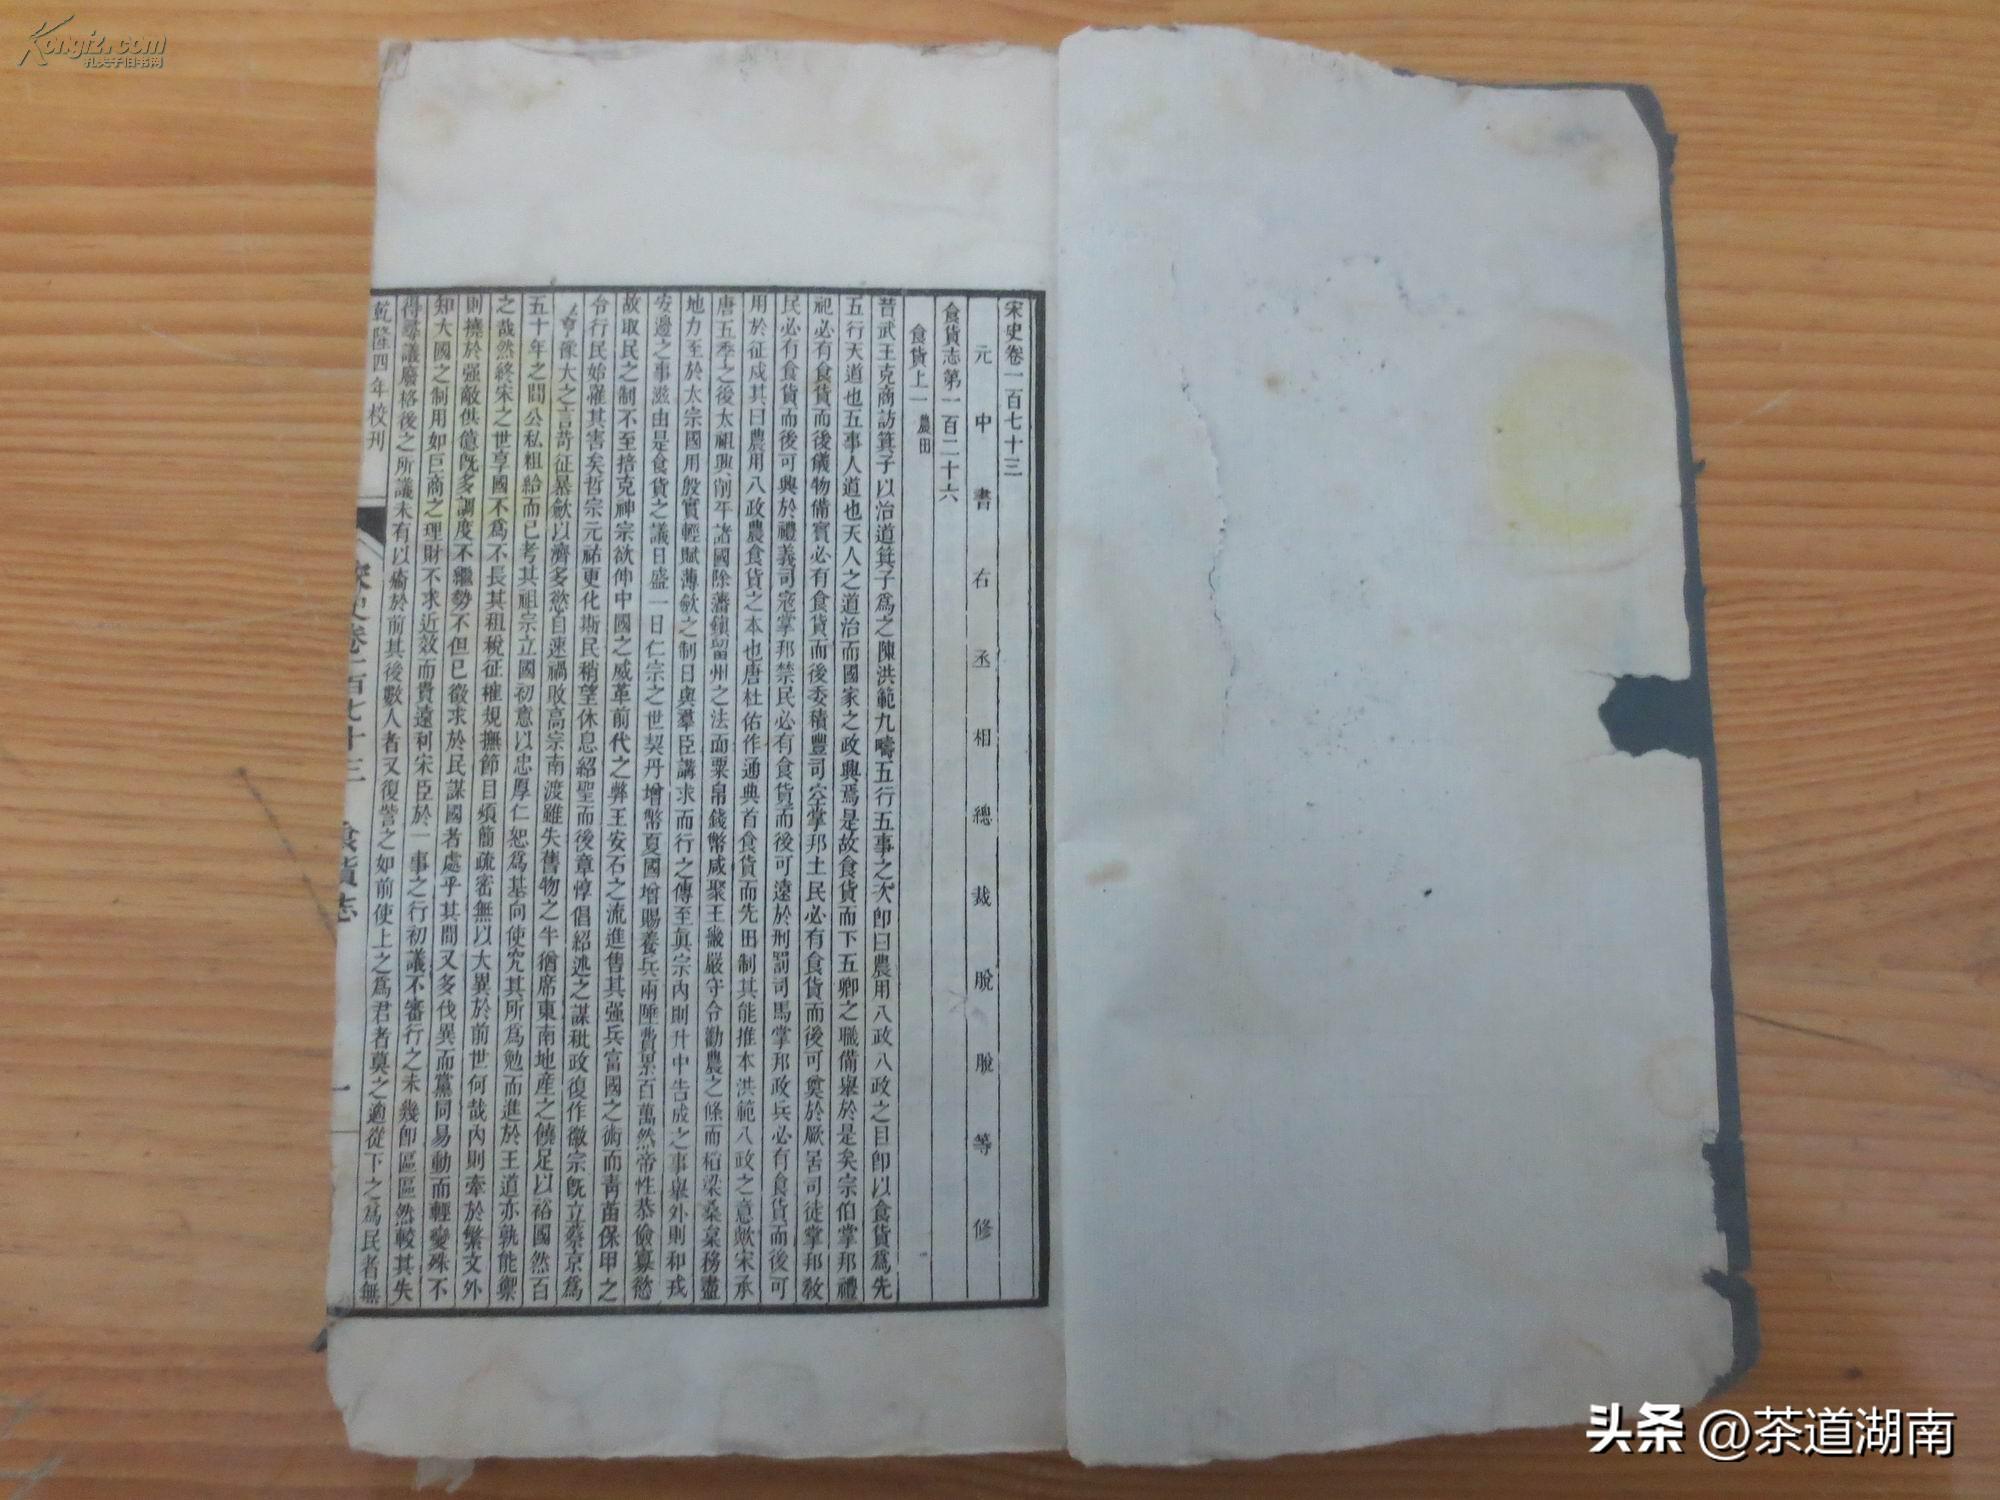 宋史卷一百七十三
元中書右丞相總裁脫脫等修
食貨志第一百二十六
食貨上一 農田
昔武王克商訪箕子以治道箕子爲之陳洪範九疇五行五事之次卽曰農用八政八政之目卽以食貨爲先
五行天道也五事人道也天人之道治而國家之政興焉是故食貨而下五卿之職備舉於是矣宗伯掌邦禮
祀必有食貨而後儀物備賓必有食貨而後委積豐司空掌邦土民必有食貨而後可奠於厥居司徒掌邦敎
民必有食貨而後可興於禮義司寇掌邦禁民必有食貨而後可遠於刑罰司馬掌邦政兵必有食貨而後可
用於征戍其曰農用八政農食貨之本也唐杜佑作通典首食貨而先田制其能推本洪範八政之意歟宋承
唐五季之後太祖興削平諸國除藩鎭留州之法而粟帛錢幣咸聚王畿嚴守令勸農之條而稻粱桑枲務盡
地力至於太宗國用殷實輕賦薄斂之制日與羣臣講求而行之傳至眞宗內則升中告成之事舉外則和戎
安邊之事滋由是食貨之議日盛一日仁宗之世契丹增幣夏國增賜養兵兩陲費累百萬然帝性恭儉寡慾
故取民之制不至掊克神宗欲伸中國之威革前代之弊王安石之流進售其强兵富國之術而靑苗保甲之
令行民始罹其害矣哲宗元祐更化斯民稍望休息紹聖而後章惇倡紹述之謀秕政復作徽宗旣立蔡京爲
亨豫大之言苛征暴斂以濟多慾自速禍敗高宗南渡雖失舊物之半猶席東南地產之饒足以裕國然百
五十年之間公私粗給而已考其祖宗立國初意以忠厚仁恕爲基向使究其所爲勉而進於王道亦孰能禦
之哉然終宋之世享國不爲不長其租稅征榷規撫節目煩簡疏密無以大異於前世何哉內則牽於繁文外
則撓於强敵供億旣多調度不繼勢不但已徵求於民謀國者處乎其間又多伐異而黨同易動而輕變殊不
知大國之制用如巨商之理財不求近效而貴遠利宋臣於一事之行初議不審行之未幾卽區區然較其失
得尋議廢格後之所議未有以瘉於前其後數人者又復訾之如前使上之爲君者莫之適從下之爲民者無
乾隆四年校刊
宋史卷一百七十三
食貨志
一
Kongfz.com
孔夫子旧书网
头条 @茶道湖南